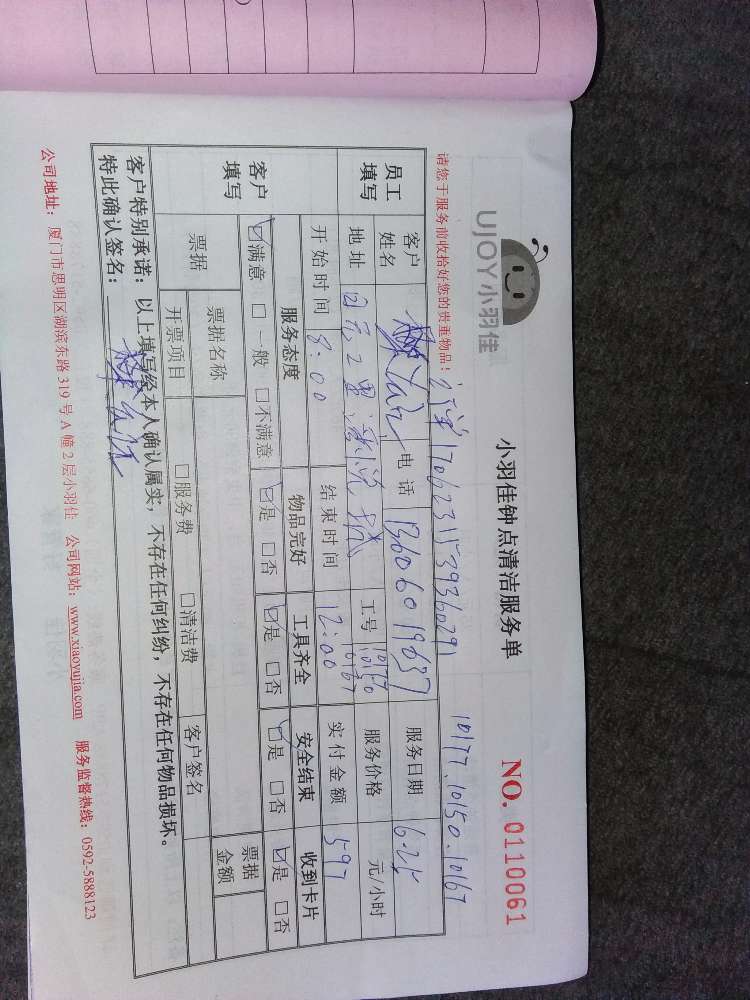 UJOY小羽佳
小羽佳钟点清洁服务单
NO. 0110061
10177.10150.10167
请您于服务前收拾好您的贵重物品！
17062311539360291
员工填写
客户姓名
电话 13606019637
服务日期 6.25
地址
工号 10177 10150 10167
服务价格 元/小时
开始时间 8:00
结束时间 12:00
实付金额 597
客户填写
服务态度 物品完好 工具齐全 安全结束 收到卡片
☑满意 □一般 □不满意 ☑是 □否 ☑是 □否 ☑是 □否 ☑是 □否
票据
票据名称
票据金额
开票项目 □服务费 □清洁费 客户签名
客户特别承诺：以上填写经本人确认属实，不存在任何纠纷，不存在任何物品损坏。
特此确认签名：
公司地址：厦门市思明区湖滨东路319号A幢2层小羽佳 公司网站：www.xiaoyujia.com 服务监督热线：0592-5888123